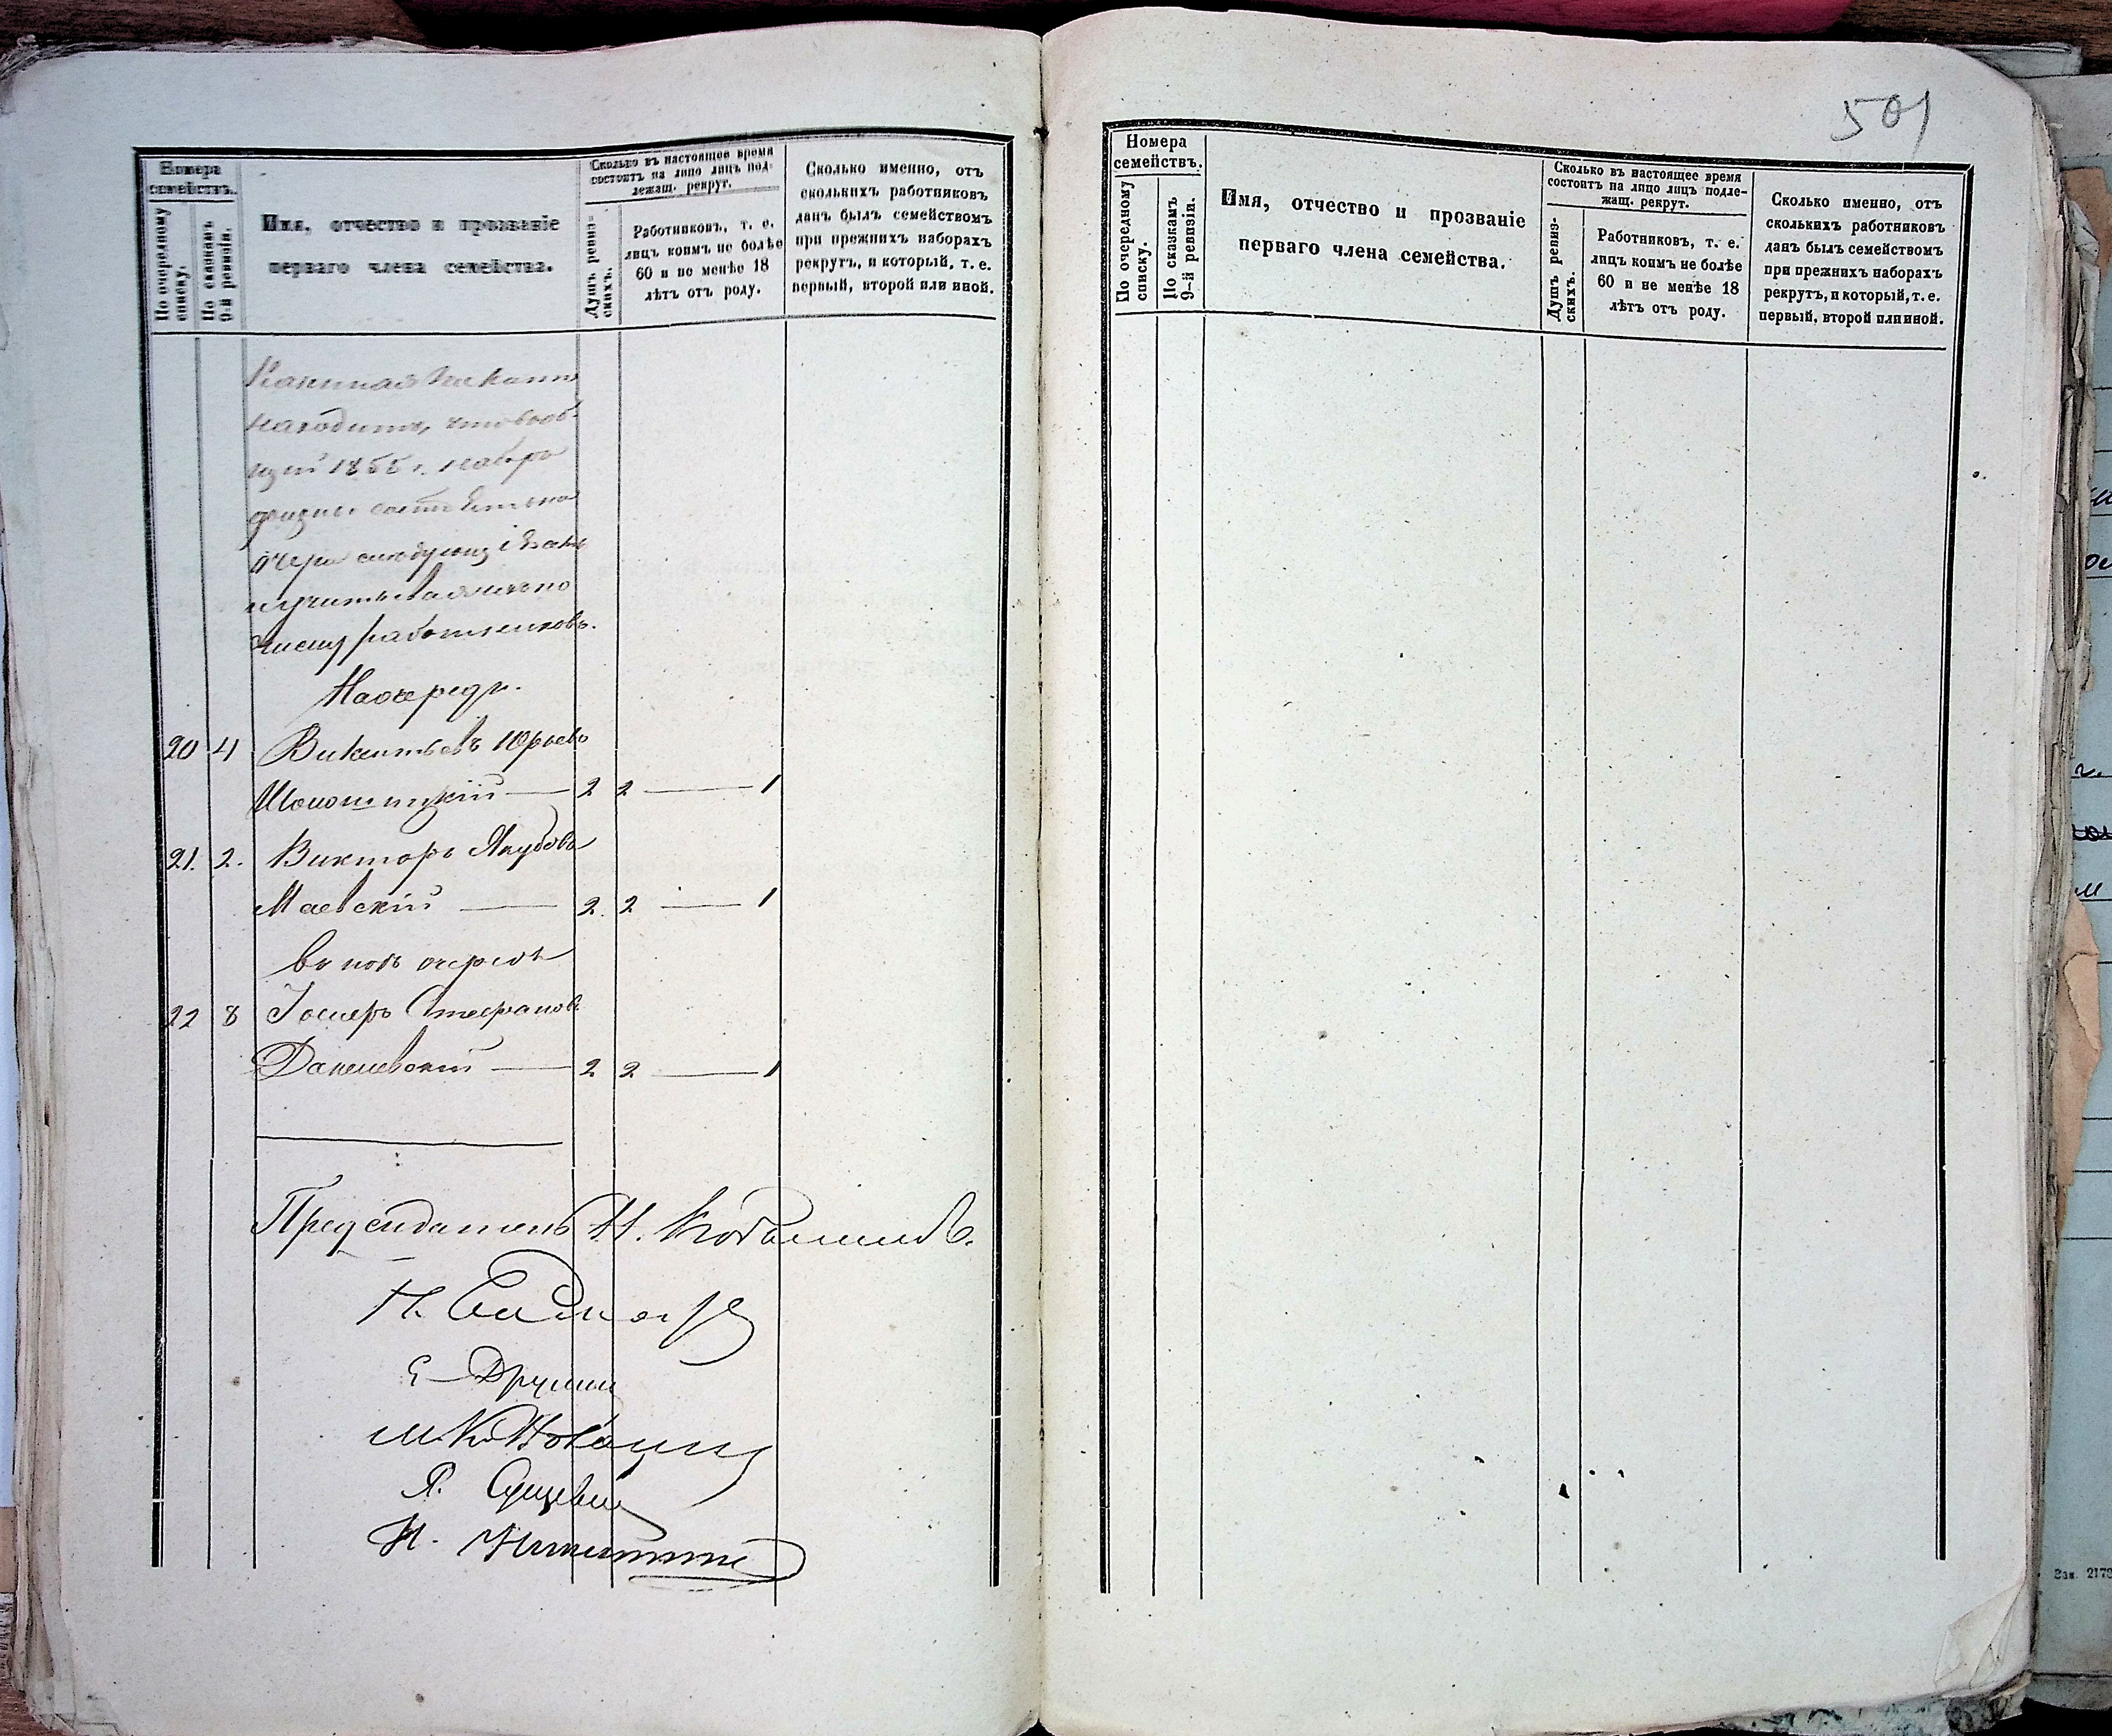 Номера
семействъ.
По очередному
списку.
По сказкамъ
9-й ревизіи.
Имя, отчество и прозваніе
перваго члена семейства.
Сколько въ настоящее время
состоитъ на лицо лицъ под-
лежащ. рекрут.
Душъ ревиз-
скихъ.
Работниковъ, т. е.
лицъ коимъ не болѣе
60 и не менѣе 18
лѣтъ отъ роду.
Сколько именно, отъ
сколькихъ работниковъ
данъ былъ семействомъ
при прежнихъ наборахъ
рекрутъ, и который, т. е.
первый, второй или иной.
Казенная Палата
находитъ, что вооб-
щей 1855 г. наборъ
должны состоять на
очереди следующ
числу работниковъ.
На очереди.
20 4 Викентьевъ Юрьевъ
2 2 — 1
21. 2. Викторъ Якубовъ
Маевскій — 2. 2 — 1
въ подъ очереди
22 8 Іосифъ Стефановъ
Данилевскій — 2 2 — 1
Председатель Н.
Н.
Е
М.
Я.
Н. Никитинъ
501
Номера
семействъ.
По очередному
списку.
По сказкамъ
9-й ревизіи.
Имя, отчество и прозваніе
перваго члена семейства.
Сколько въ настоящее время
состоитъ на лицо лицъ подле-
жащ. рекрут.
Душъ ревиз-
скихъ.
Работниковъ, т. е.
лицъ коимъ не болѣе
60 и не менѣе 18
лѣтъ отъ роду.
Сколько именно, отъ
сколькихъ работниковъ
данъ былъ семействомъ
при прежнихъ наборахъ
рекрутъ, и который, т. е.
первый, второй или иной.
Зак. 2173